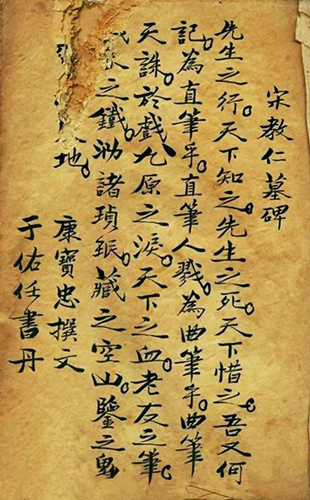 宋教仁墓碑
先生之行。天下知之。先生之死。天下惜之。吾又何
記。為直筆乎。直筆人戮。為曲筆乎。曲筆
天誅。於戲。九原之淚。天下之血。老友之筆。
之鐵。泐諸瑱珉。藏之空山。鑒之鬼
地。
康寶忠撰文
于佑任書丹